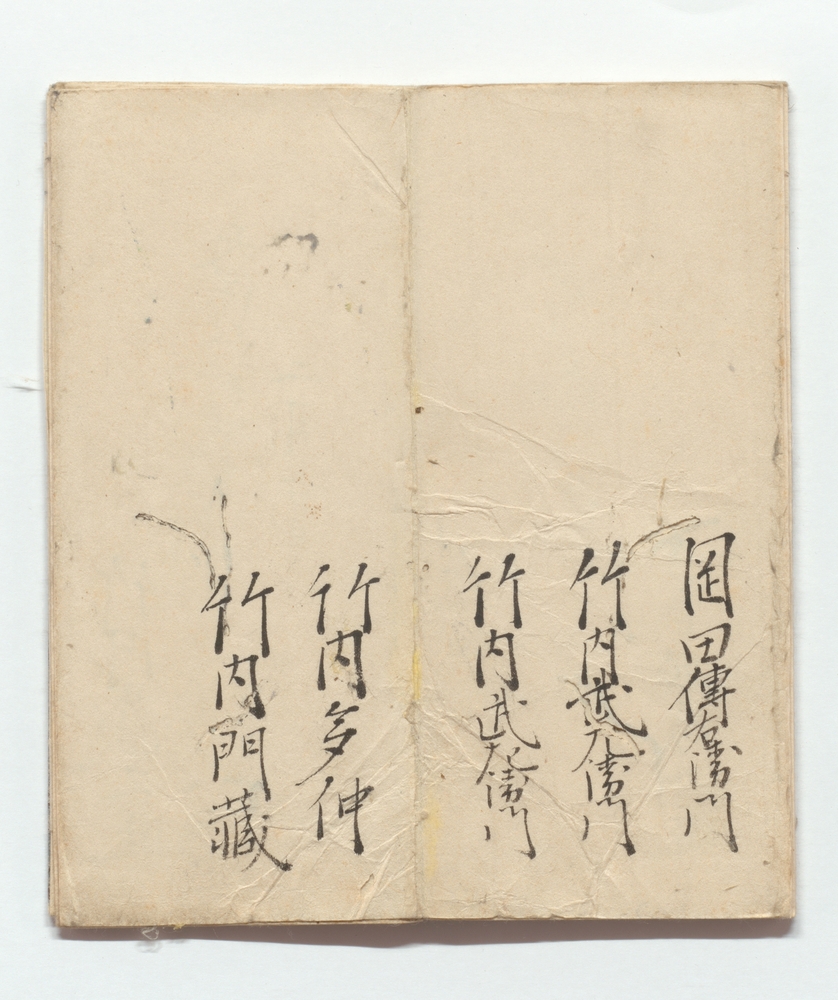 岡田傳右衛門
竹内武左衛門
竹内武左衛門
竹内多仲
竹内門藏